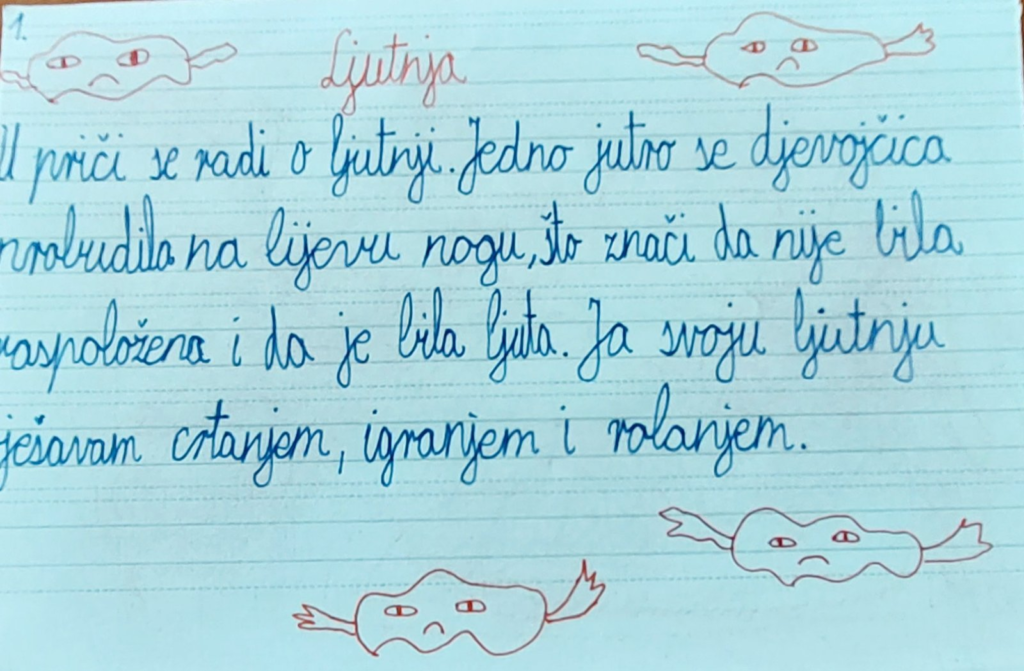 1.
Ljutnja
U priči se radi o ljutnji. Jedno jutro se djevojčica
probudila na lijevu nogu, što znači da nije bila
raspoložena i da je bila ljuta. Ja svoju ljutnju
ješavam crtanjem, igranjem i rolanjem.